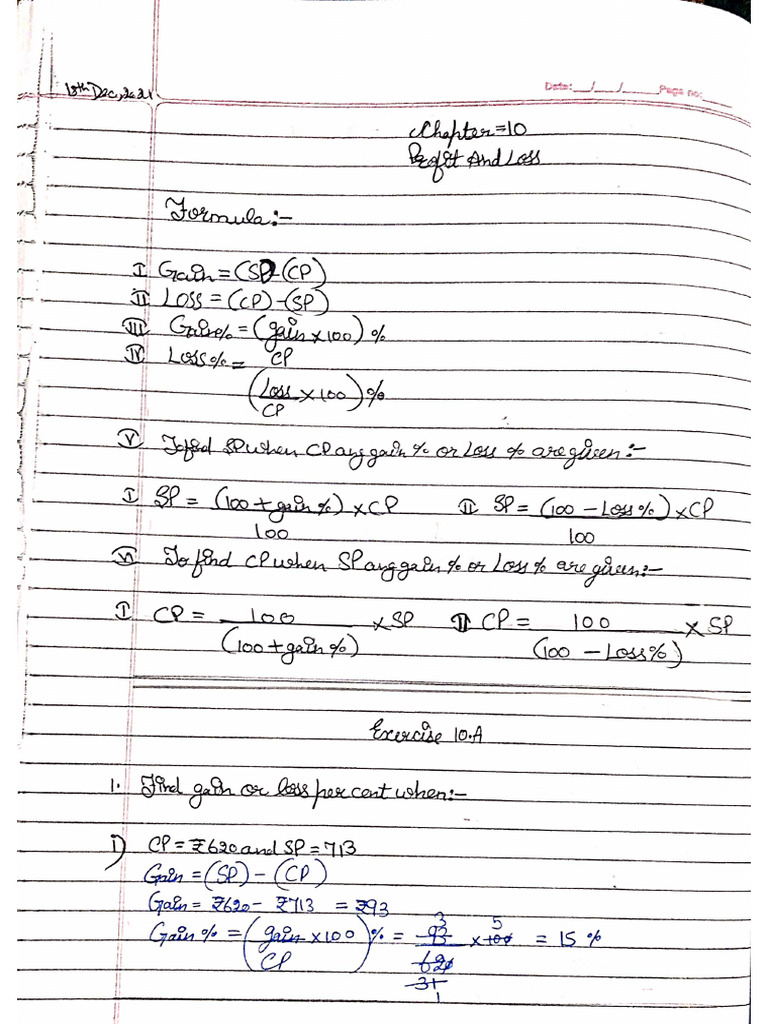 18th Dec, 2021
Date: __/__/____ Page no: ____
Chapter = 10
Profit And Loss
Formula:-
I Gain = (SP) - (CP)
II Loss = (CP) - (SP)
III Gain% = (gain/CP × 100) %
IV Loss% = (Loss/CP × 100) %
V To find SP when CP any gain % or Loss % are given:-
I SP = (100 + gain %)/100 × CP II SP = (100 - Loss %)/100 × CP
VI To find CP when SP any gain % or Loss % are given:-
I CP = 100/(100 + gain %) × SP II CP = 100/(100 - Loss %) × SP
Exercise 10.A
1. Find gain or loss per cent when:-
I) CP = ₹620 and SP = 713
Gain = (SP) - (CP)
Gain = ₹620 - ₹713 = ₹93
Gain % = (gain/CP × 100) % = 93/620 × 100 = 15 %
3 5
31
1